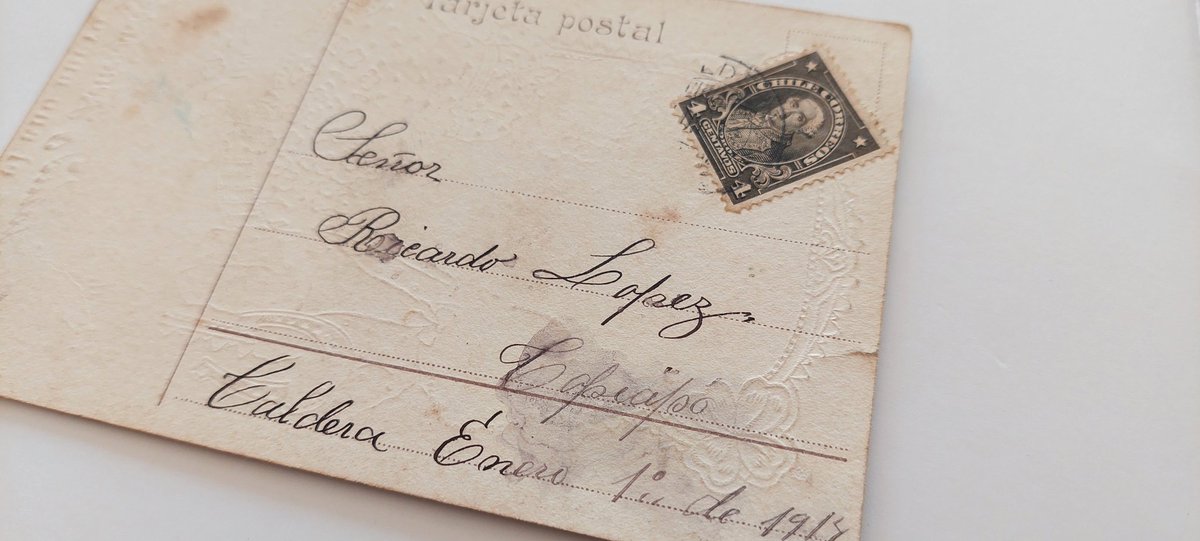 Tarjeta postal
CHILE CORREOS
4 CENTAVOS 4
Señor
Ricardo Lopez
Copiapó
Caldera Enero 1º de 1914